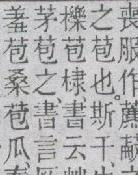 喪服作藨
之苞也。斯干
櫟苞棣書云艸
茅苞之、書言
羞苞桑苞瓜